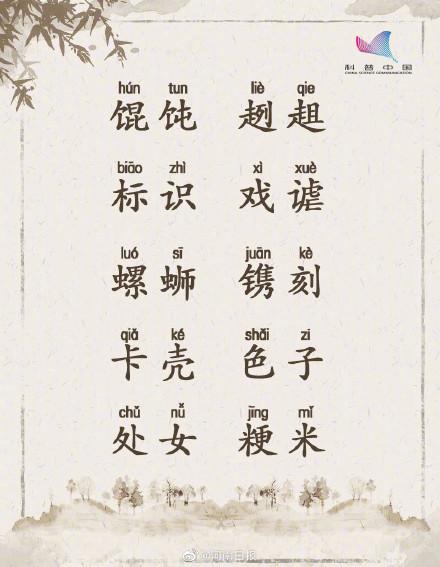 科普中国
CHINA SCIENCE COMMUNICATION
hún tun liè qie
馄饨 趔趄
biāo zhì xì xuè
标识 戏谑
luó sī juān kè
螺蛳 镌刻
qiǎ ké shǎi zi
卡壳 色子
chǔ nǚ jīng mǐ
处女 粳米
@河南日报